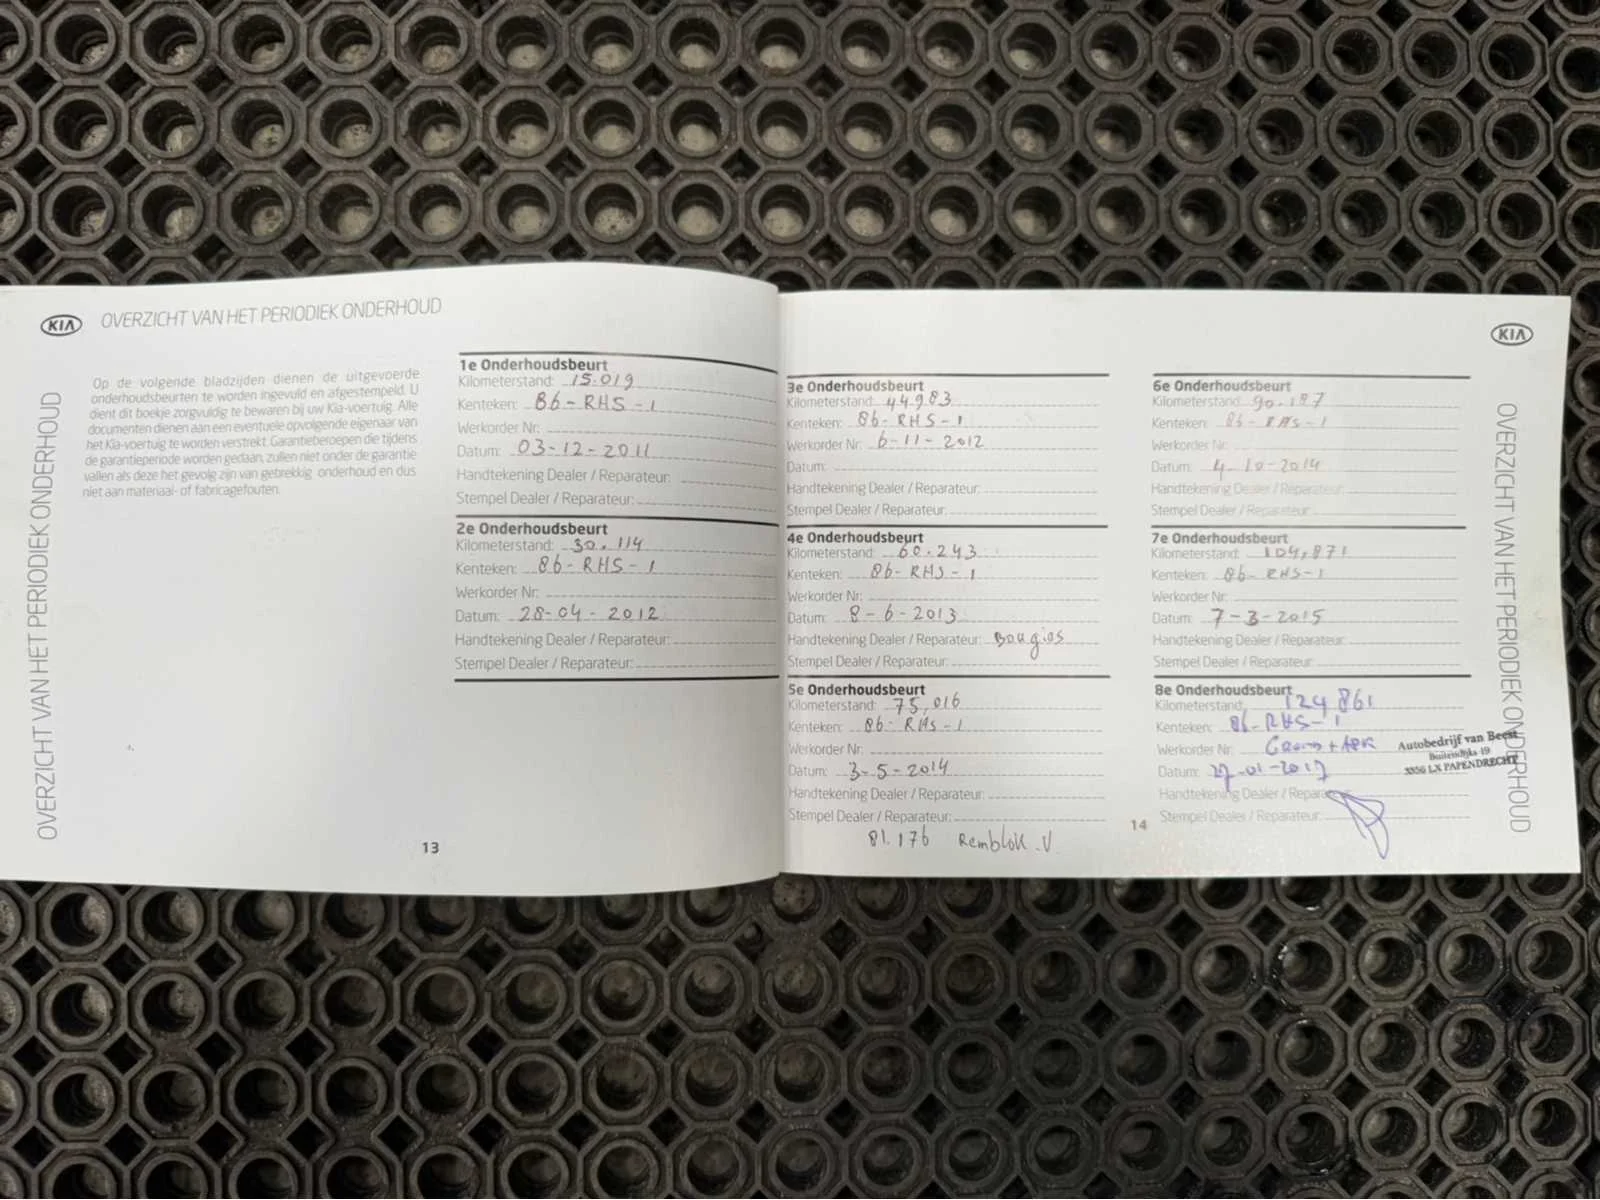 KIA OVERZICHT VAN HET PERIODIEK ONDERHOUD
OVERZICHT VAN HET PERIODIEK ONDERHOUD
Op de volgende bladzijden dienen de uitgevoerde
onderhoudsbeurten te worden ingevuld en afgestempeld. U
dient dit boekje zorgvuldig te bewaren bij uw Kia-voertuig. Alle
documenten dienen aan een eventuele opvolgende eigenaar van
het Kia-voertuig te worden verstrekt. Garantieberoepen die tijdens
de garantieperiode worden gedaan, zullen niet onder de garantie
vallen als deze het gevolg zijn van gebrekkig onderhoud en dus
niet aan materiaal- of fabricagefouten.
1e Onderhoudsbeurt
Kilometerstand: 15.019
Kenteken: 86-RHS-1
Werkorder Nr:
Datum: 03-12-2011
Handtekening Dealer / Reparateur:
Stempel Dealer / Reparateur:
2e Onderhoudsbeurt
Kilometerstand: 30.114
Kenteken: 86-RHS-1
Werkorder Nr:
Datum: 28-04-2012
Handtekening Dealer / Reparateur:
Stempel Dealer / Reparateur:
13
3e Onderhoudsbeurt
Kilometerstand: 44983
Kenteken: 86-RHS-1
Werkorder Nr: 6-11-2012
Datum:
Handtekening Dealer / Reparateur:
Stempel Dealer / Reparateur:
4e Onderhoudsbeurt
Kilometerstand: 60.243
Kenteken: 86-RHS-1
Werkorder Nr:
Datum: 8-6-2013
Handtekening Dealer / Reparateur: Bougies
Stempel Dealer / Reparateur:
5e Onderhoudsbeurt
Kilometerstand: 75,016
Kenteken: 86-RHS-1
Werkorder Nr:
Datum: 3-5-2014
Handtekening Dealer / Reparateur:
Stempel Dealer / Reparateur:
81.176 Remblok.V
14
KIA
6e Onderhoudsbeurt
Kilometerstand: 90.187
Kenteken: 86-RHS-1
Werkorder Nr:
Datum: 4-10-2014
Handtekening Dealer / Reparateur:
Stempel Dealer / Reparateur:
7e Onderhoudsbeurt
Kilometerstand: 104,871
Kenteken: 86-RHS-1
Werkorder Nr:
Datum: 7-3-2015
Handtekening Dealer / Reparateur:
Stempel Dealer / Reparateur:
8e Onderhoudsbeurt
Kilometerstand: 124861
Kenteken: 86-RHS-1
Werkorder Nr:
Datum: 27-01-2017
Handtekening Dealer / Reparateur:
Stempel Dealer / Reparateur:
Autobedrijf van Beest
Buitendijks 19
3356 LX PAPENDRECHT
OVERZICHT VAN HET PERIODIEK ONDERHOUD